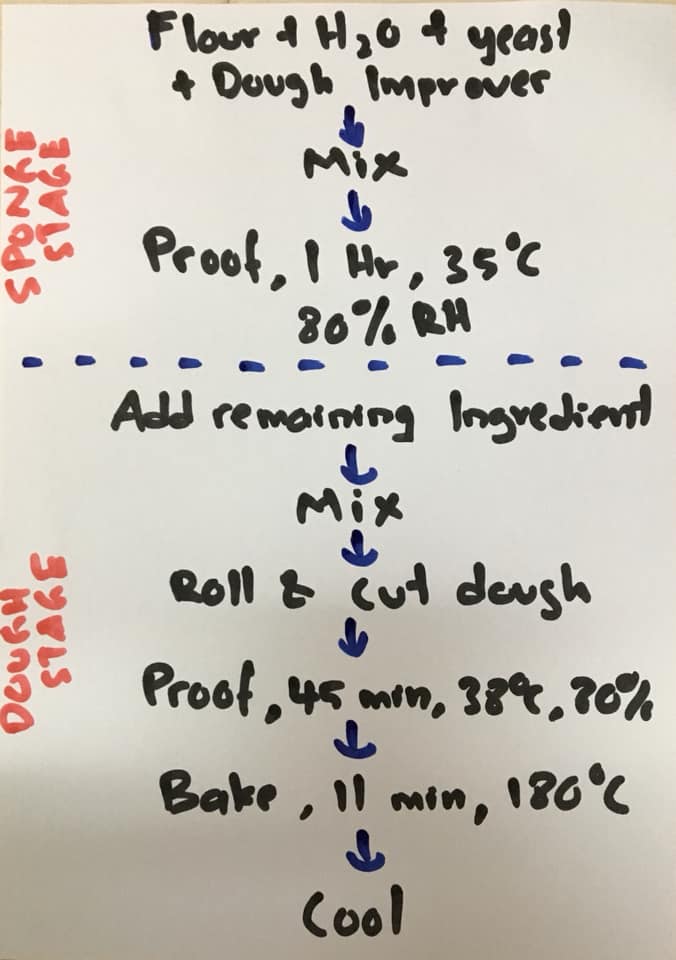 Flour + H₂O + yeast
+ Dough Improver
Mix
Proof, 1 Hr, 35°C
80% RH
SPONGE
STAGE
Add remaining Ingredient
Mix
Roll & cut dough
Proof, 45 min, 38°C, 80%
Bake, 11 min, 180°C
Cool
DOUGH
STAGE